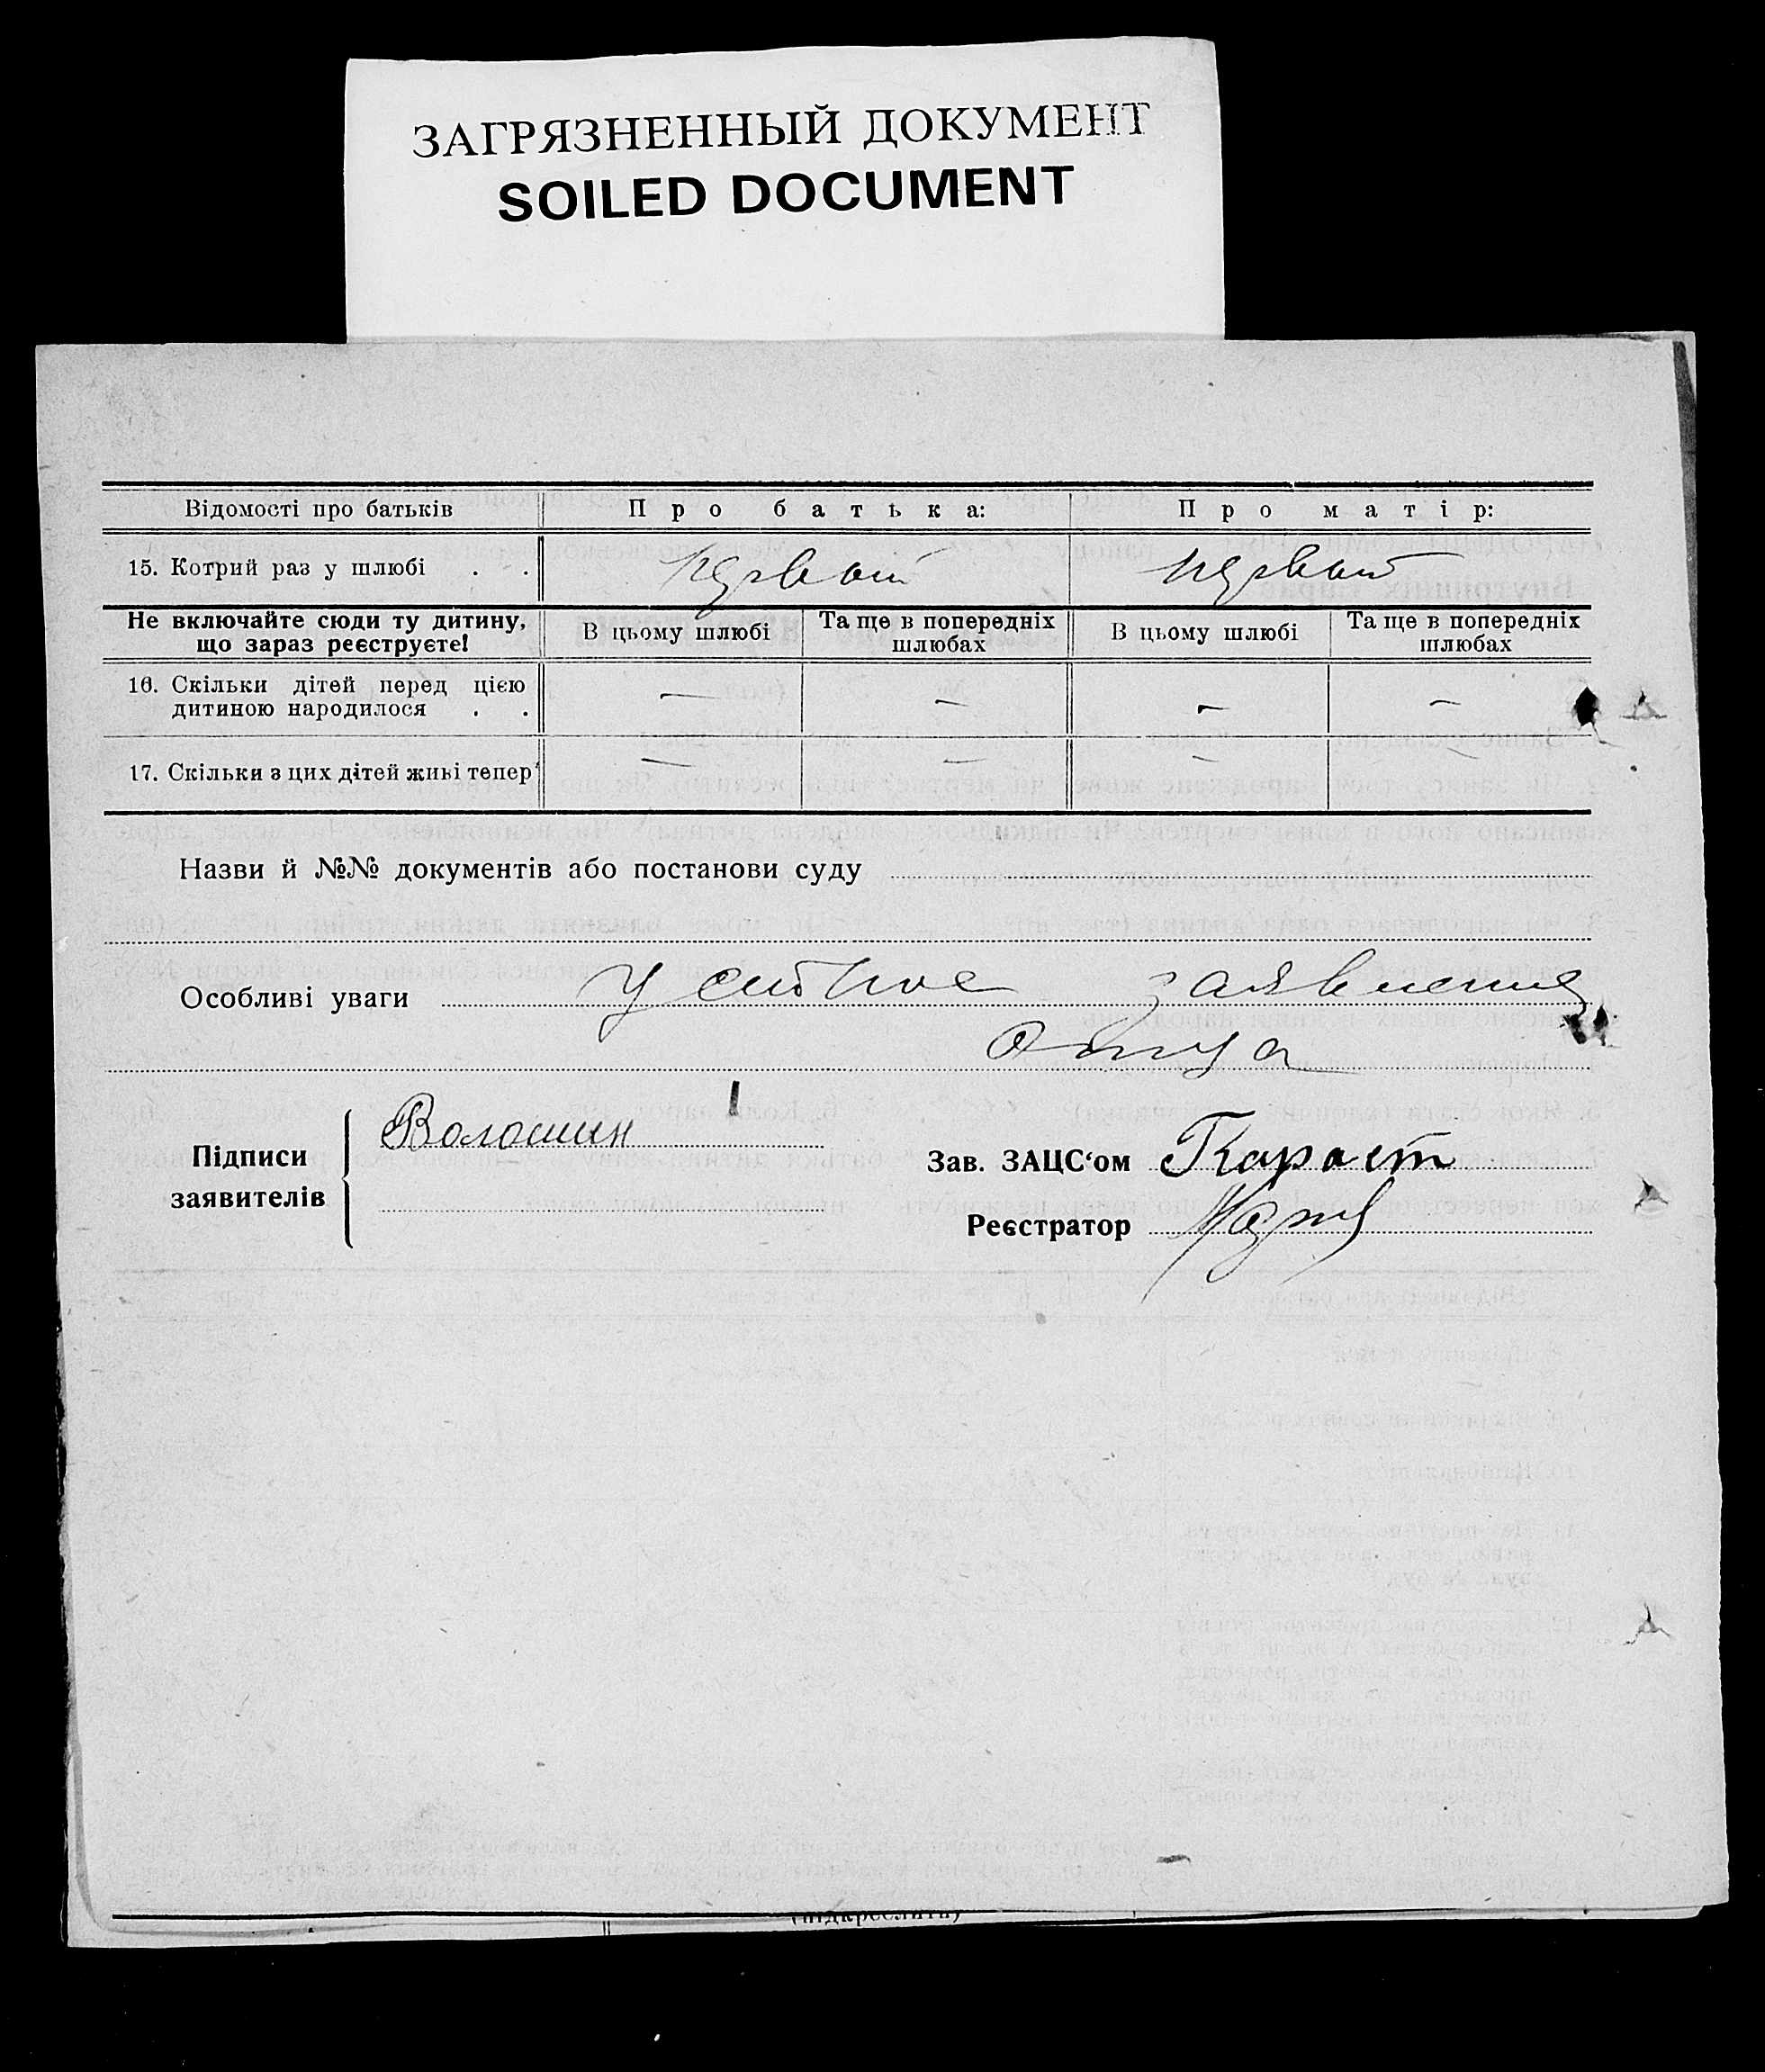 ЗАГРЯЗНЕННЫЙ ДОКУМЕНТ
SOILED DOCUMENT
Відомості про батьків Про батька: Про матір:
15. Котрий раз у шлюбі . . первый первый
Не включайте сюди ту дитину, що зараз реєструєте! В цьому шлюбі Та ще в попередніх шлюбах В цьому шлюбі Та ще в попередніх шлюбах
16. Скільки дітей перед цією
дитиною народилося . . — — — —
17. Скільки з цих дітей живі тепер? — — — —
Назви й №№ документів або постанови суду
Особливі уваги устное заявление
отца
Підписи
заявителів
Волошин
Зав. ЗАЦС‘ом
Реєстратор
(підкреслити)